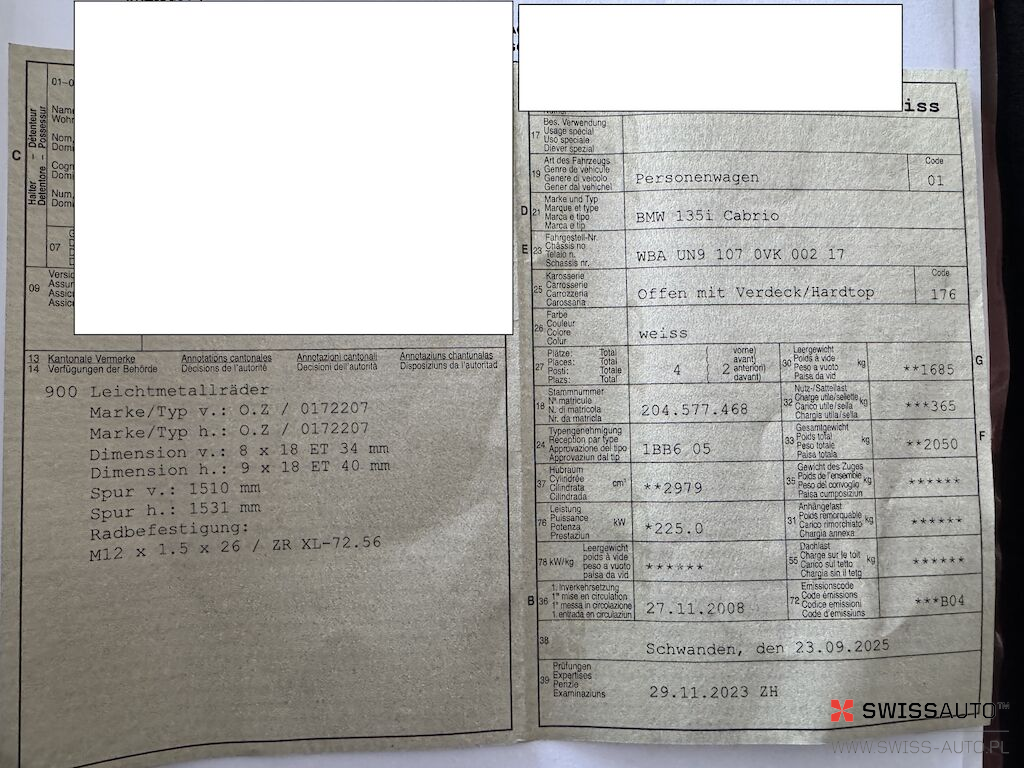 01-0
C
Halter – Détenteur
Detentore – Possessur
Name
Wohn
Nom,
Domi
Cogn
Domi
Num,
Domi
07
09
Versic
Assur
Assic
Assic
13 Kantonale Vermerke Annotations cantonales Annotazioni cantonali Annotaziuns chantunalas
14 Verfügungen der Behörde Décisions de l'autorité Decisioni dell'autorità Disposiziuns da l'autoritad
900 Leichtmetallräder
Marke/Typ v.: O.Z / 0172207
Marke/Typ h.: O.Z / 0172207
Dimension v.: 8 x 18 ET 34 mm
Dimension h.: 9 x 18 ET 40 mm
Spur v.: 1510 mm
Spur h.: 1531 mm
Radbefestigung:
M12 x 1.5 x 26 / ZR XL-72.56
iss
17 Bes. Verwendung
Usage spécial
Uso speciale
Diever spezial
19 Art des Fahrzeugs
Genre de véhicule
Genere di veicolo
Gener dal vehichel
Personenwagen
Code
01
D 21 Marke und Typ
Marque et type
Marca e tipo
Marca e tip
BMW 135i Cabrio
E 23 Fahrgestell-Nr.
Châssis no
Telaio n.
Schassis nr.
WBA UN9 107 0VK 002 17
25 Karosserie
Carrosserie
Carrozzeria
Carossaria
Offen mit Verdeck/Hardtop
Code
176
26 Farbe
Couleur
Colore
Colur
weiss
27 Plätze: Total
Places: Total
Posti: Totale
Plazs: Total
4
vorne)
avant)
2 anteriori)
davant)
G
30 Leergewicht
Poids à vide
Peso a vuoto
Paisa da vid
kg
**1685
18 Stammnummer
Nº matricule
N. di matricola
Nr. da matricla
204.577.468
32 Nutz-/Sattellast
Charge utile/sellette
Carico utile/sella
Chargia utila/sella
kg
***365
24 Typengenehmigung
Réception par type
Approvazione del tipo
Approvaziun dal tip
1BB6 05
F
33 Gesamtgewicht
Poids total
Peso totale
Paisa totala
kg
**2050
37 Hubraum
Cylindrée
Cilindrata
Cilindrada
cm³
**2979
35 Gewicht des Zuges
Poids de l'ensemble
Peso del convoglio
Paisa cumposiziun
kg
******
76 Leistung
Puissance
Potenza
Prestaziun
kW
*225.0
31 Anhängelast
Poids remorquable
Carico rimorchiato
Chargia annexa
kg
******
78 kW/kg Leergewicht
poids à vide
peso a vuoto
paisa da vid
******
55 Dachlast
Charge sur le toit
Carico sul tetto
Chargia sin il tetg
kg
******
B 36 1. Inverkehrsetzung
1re mise en circulation
1a messa in circolazione
1. entrada en circulaziun
27.11.2008
72 Emissionscode
Code émissions
Codice emissioni
Code d'emissiuns
***B04
38
Schwanden, den 23.09.2025
39 Prüfungen
Expertises
Perizie
Examinaziuns
29.11.2023 ZH
SWISSAUTO™
WWW.SWISS-AUTO.PL